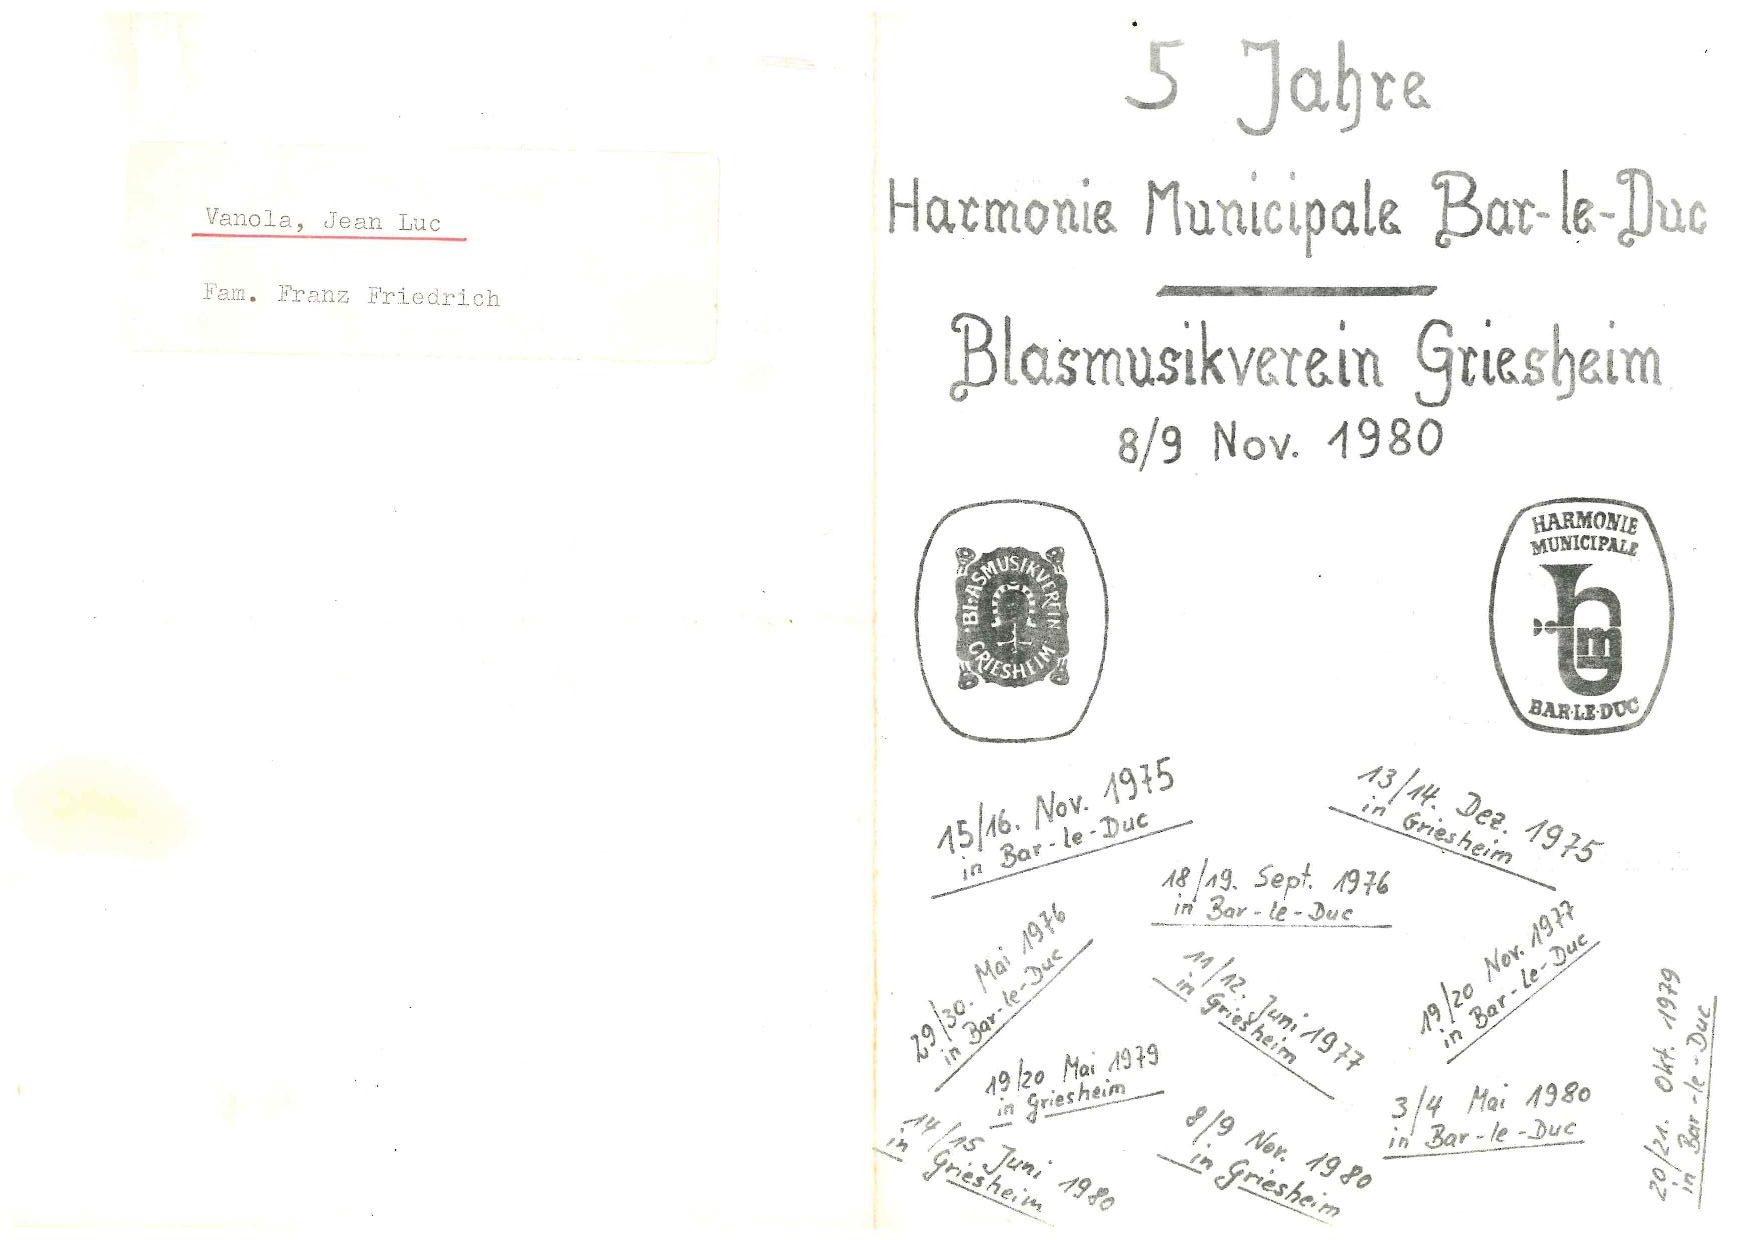 Vanola, Jean Luc
Fam. Franz Friedrich
5 Jahre
Harmonie Municipale Bar-le-Duc
Blasmusikverein Griesheim
8/9 Nov. 1980
BLASMUSIKVEREIN
GRIESHEIM
HARMONIE
MUNICIPALE
hm
BAR·LE·DUC
15/16. Nov. 1975
in Bar-le-Duc
13/14. Dez. 1975
in Griesheim
18/19. Sept. 1976
in Bar-le-Duc
29/30. Mai 1976
in Bar-le-Duc
11/12. Juni 1977
in Griesheim
19/20 Nov. 1977
in Bar-le-Duc
19/20 Mai 1979
in Griesheim
20/21. Okt. 1979
in Bar-le-Duc
3/4 Mai 1980
in Bar-le-Duc
14/15 Juni 1980
in Griesheim
8/9 Nov. 1980
in Griesheim